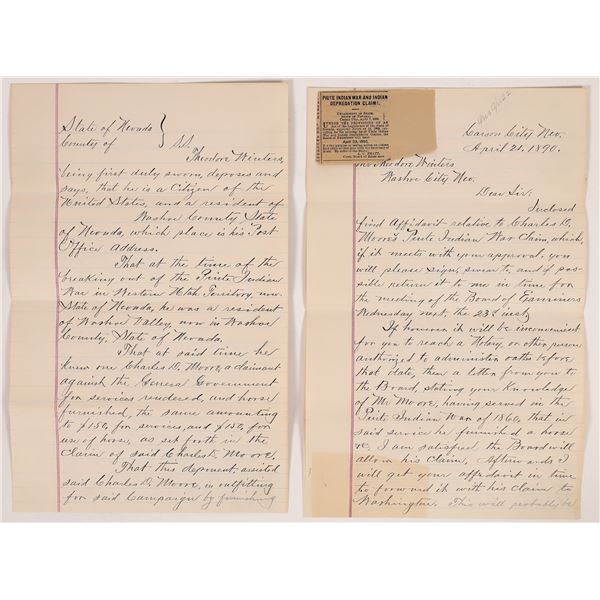 State of Nevada }
County of } SS.
Theodore Winters,
being first duly sworn, deposes and
says, that he is a Citizen of the
United States, and a resident of
Washoe County State
of Nevada, which place is his Post
Office Address.
That at the time of the
breaking out of the Piute Indian
War in Western Utah Territory, now
State of Nevada, he was a resident
of Washoe Valley, now in Washoe
County, State of Nevada.
That at said time he
knew one Charles D. Moore, a claimant
against the General Government
for services rendered, and horse
furnished, the same amounting
to $150, for services, and $150, for
use of horse, as set forth in the
Claim of said Charles D. Moore.
That this deponent, assisted
said Charles D. Moore, in outfitting
for said Campaign by furnishing
PIUTE INDIAN WAR AND INDIAN
DEPREDATION CLAIMS.
Carson City Nev.
April 21, 1890.
Theodore Winters
Washoe City Nev.
Dear Sir:
Inclosed
find Affidavit relative to Charles D.
Moore's Piute Indian War Claim, which,
if it meets with your approval, you
will please sign, swear to, and if pos-
sible return it to me in time for
the meeting of the Board of Examiners
Wednesday next, the 23d inst.
If however it will be inconvenient
for you to reach a Notary, or other person
authorized to administer oaths before
that date, then a letter from you to
the Board, stating your Knowledge
of Mr Moore, having served in the
Piute Indian War of 1860, that in
said service he furnished a horse
&c, I am satisfied the Board will
allow his claim, Afterwards I
will get your affidavit in time
to forward it with his claim to
Washington. This will probably be